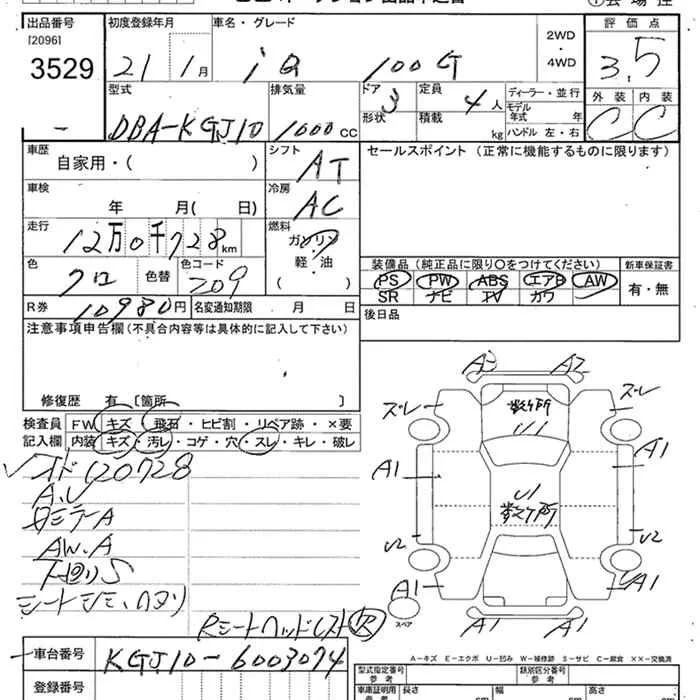 出品番号 初度登録年月 車名・グレード 2WD・4WD 評価点
[2096]
3529 21 1月 iQ 100G 3.5
型式 排気量 ドア 3 定員 4人 ディーラー・並行 外装 内装
DBA-KGJ10 1000cc 形状 積載 kg モデル年式 年 C C
ハンドル 左・右
車歴 シフト セールスポイント (正常に機能するものに限ります)
自家用・( ) AT
車検 冷房
年 月( 日) AC
走行 燃料
12万0千728km ガソリン
軽・油
( )
色 色替 色コード 装備品 (純正品に限り○をつけてください) 新車保証書
クロ 209 PS PW ABS エアB AW 有・無
SR ナビ TV カワ
R券 10980円 名変通知期限 月 日 後日品
注意事項申告欄(不具合内容等は具体的に記入して下さい)
修復歴 有 [箇所 ]
検査員 FW キズ・飛石・ヒビ割・リペア跡・×要
記入欄 内装 キズ・汚レ・コゲ・穴・スレ・キレ・破レ
120728
A.U
AW.A
下廻りS
Rシートヘッドレスト欠
車台番号 KGJ10-6003074
登録番号
A3 A2
ズレ 数ヶ所 ズレ
U1
A1 A1
U1
数ヶ所
U2 U2
A1 A1
スペア
A1 A1
A-キズ E-エクボ U-凹み W-補修跡 S-サビ C-腐食 ××-交換済
型式指定番号 類別区分番号
参考 参考
車庫証明用 長さ 幅 高さ
参考 cm cm cm